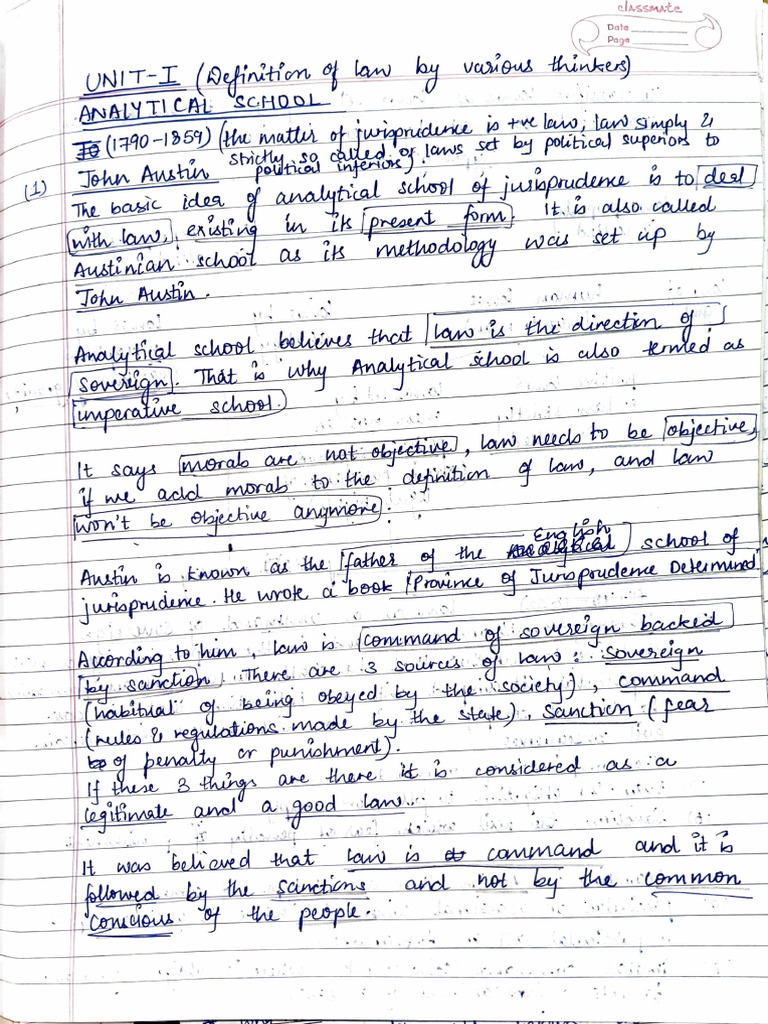 classmate
Date
Page
UNIT-I (Definition of law by various thinkers)
ANALYTICAL SCHOOL
(1790-1859) (the matter of jurisprudence is +ve law, law simply &
strictly so called or laws set by political superiors to
political inferiors).
(1) John Austin
The basic idea of analytical school of jurisprudence is to deal
with law, existing in its present form. It is also called
Austinian school as its methodology was set up by
John Austin.
Analytical school believes that law is the direction of
sovereign. That is why Analytical school is also termed as
imperative school.
It says morals are not objective, law needs to be objective,
if we add morals to the definition of law, and law
won't be objective anymore.
English
Austin is known as the father of the school of
jurisprudence. He wrote a book 'Province of Jurisprudence Determined.'
According to him, law is command of sovereign backed
by sanction. There are 3 sources of law: sovereign
(habitual of being obeyed by the society), command
(rules & regulations made by the state), sanction (fear
of penalty or punishment).
If these 3 things are there it is considered as a
legitimate and a good law.
It was believed that law is command and it is
followed by the sanctions and not by the common
conscious of the people.